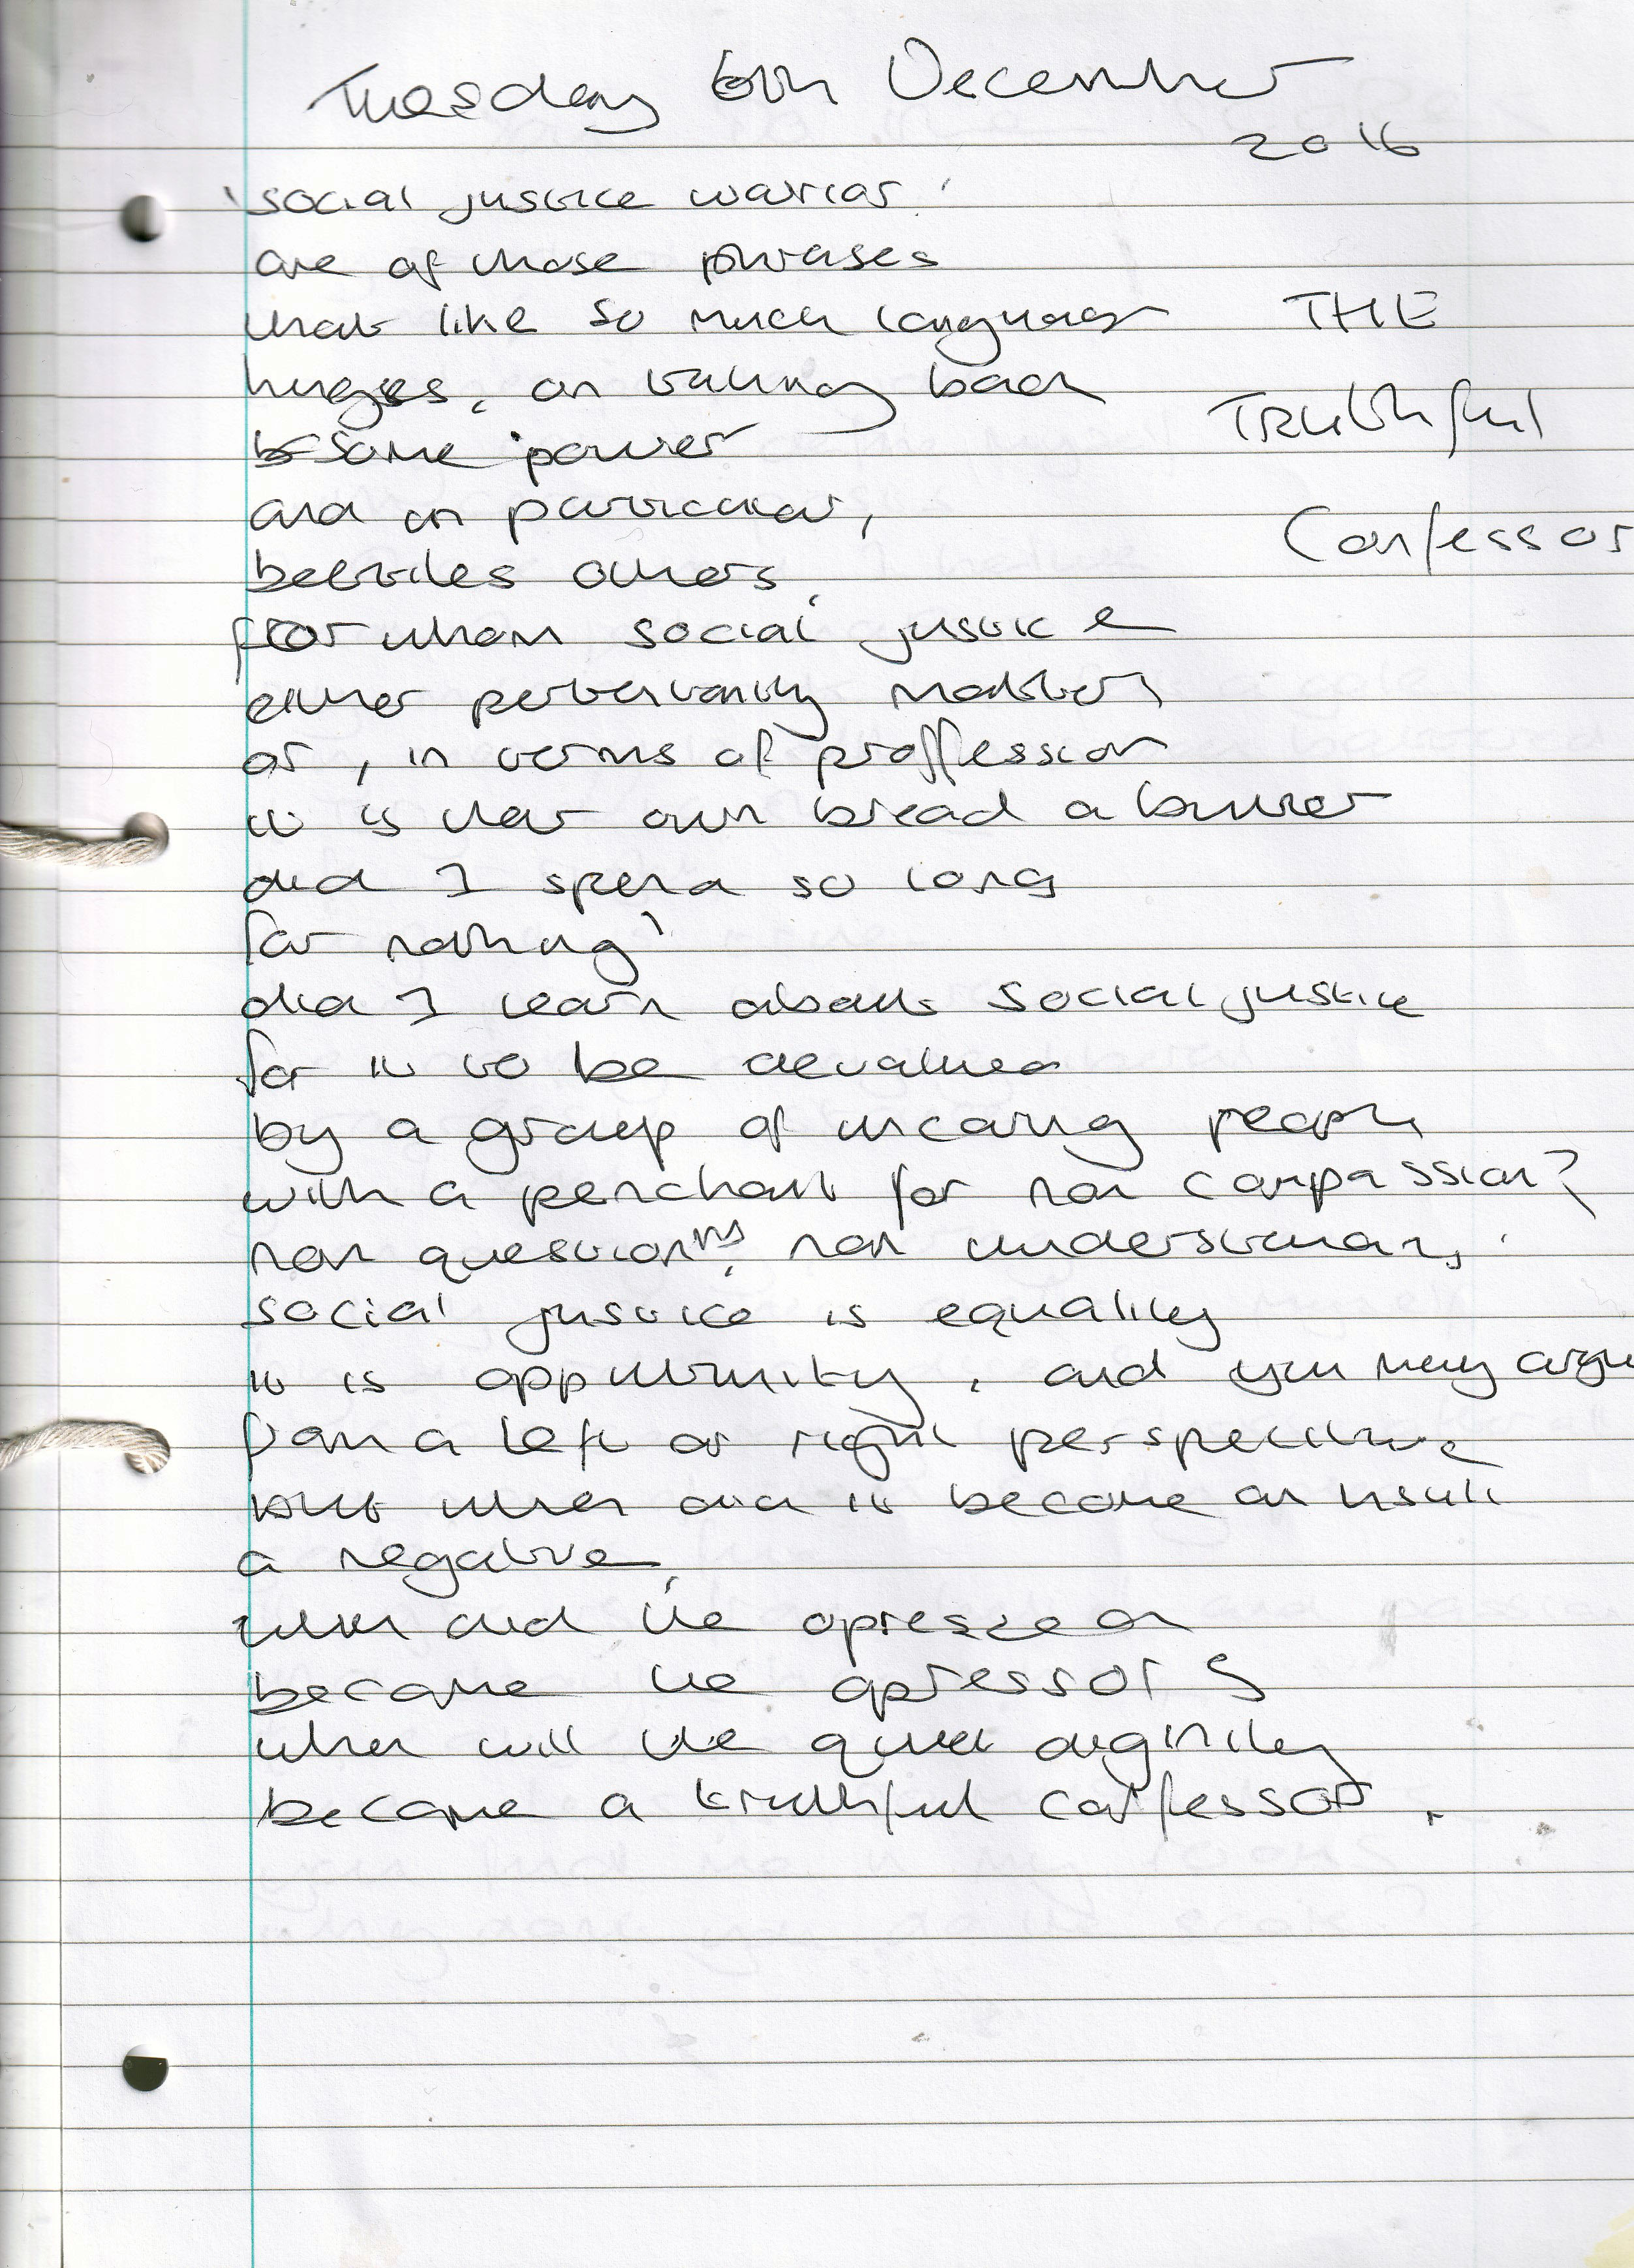 Tuesday 6th December
2016
'social justice warrior'
one of those phrases
that like so much language
THE
hinges, on taking back
Truthful
some power
and in particular,
Confessor
belittles others,
for whom social justice
either personally matters
or, in terms of proffession
it is their own bread a butter
did I spend so long
for nothing?
did I learn about social justice
for it to be devalued
by a group of uncaring people
with a penchant for non compassion?
non questions, non understanding.
social justice is equality
it is oppurtunity, and you may argu
from a left or right perspective
but when did it become an insult
a negative,
when did the opressed
become the opressor s
when will the quiet diginity
become a truthful confessor.